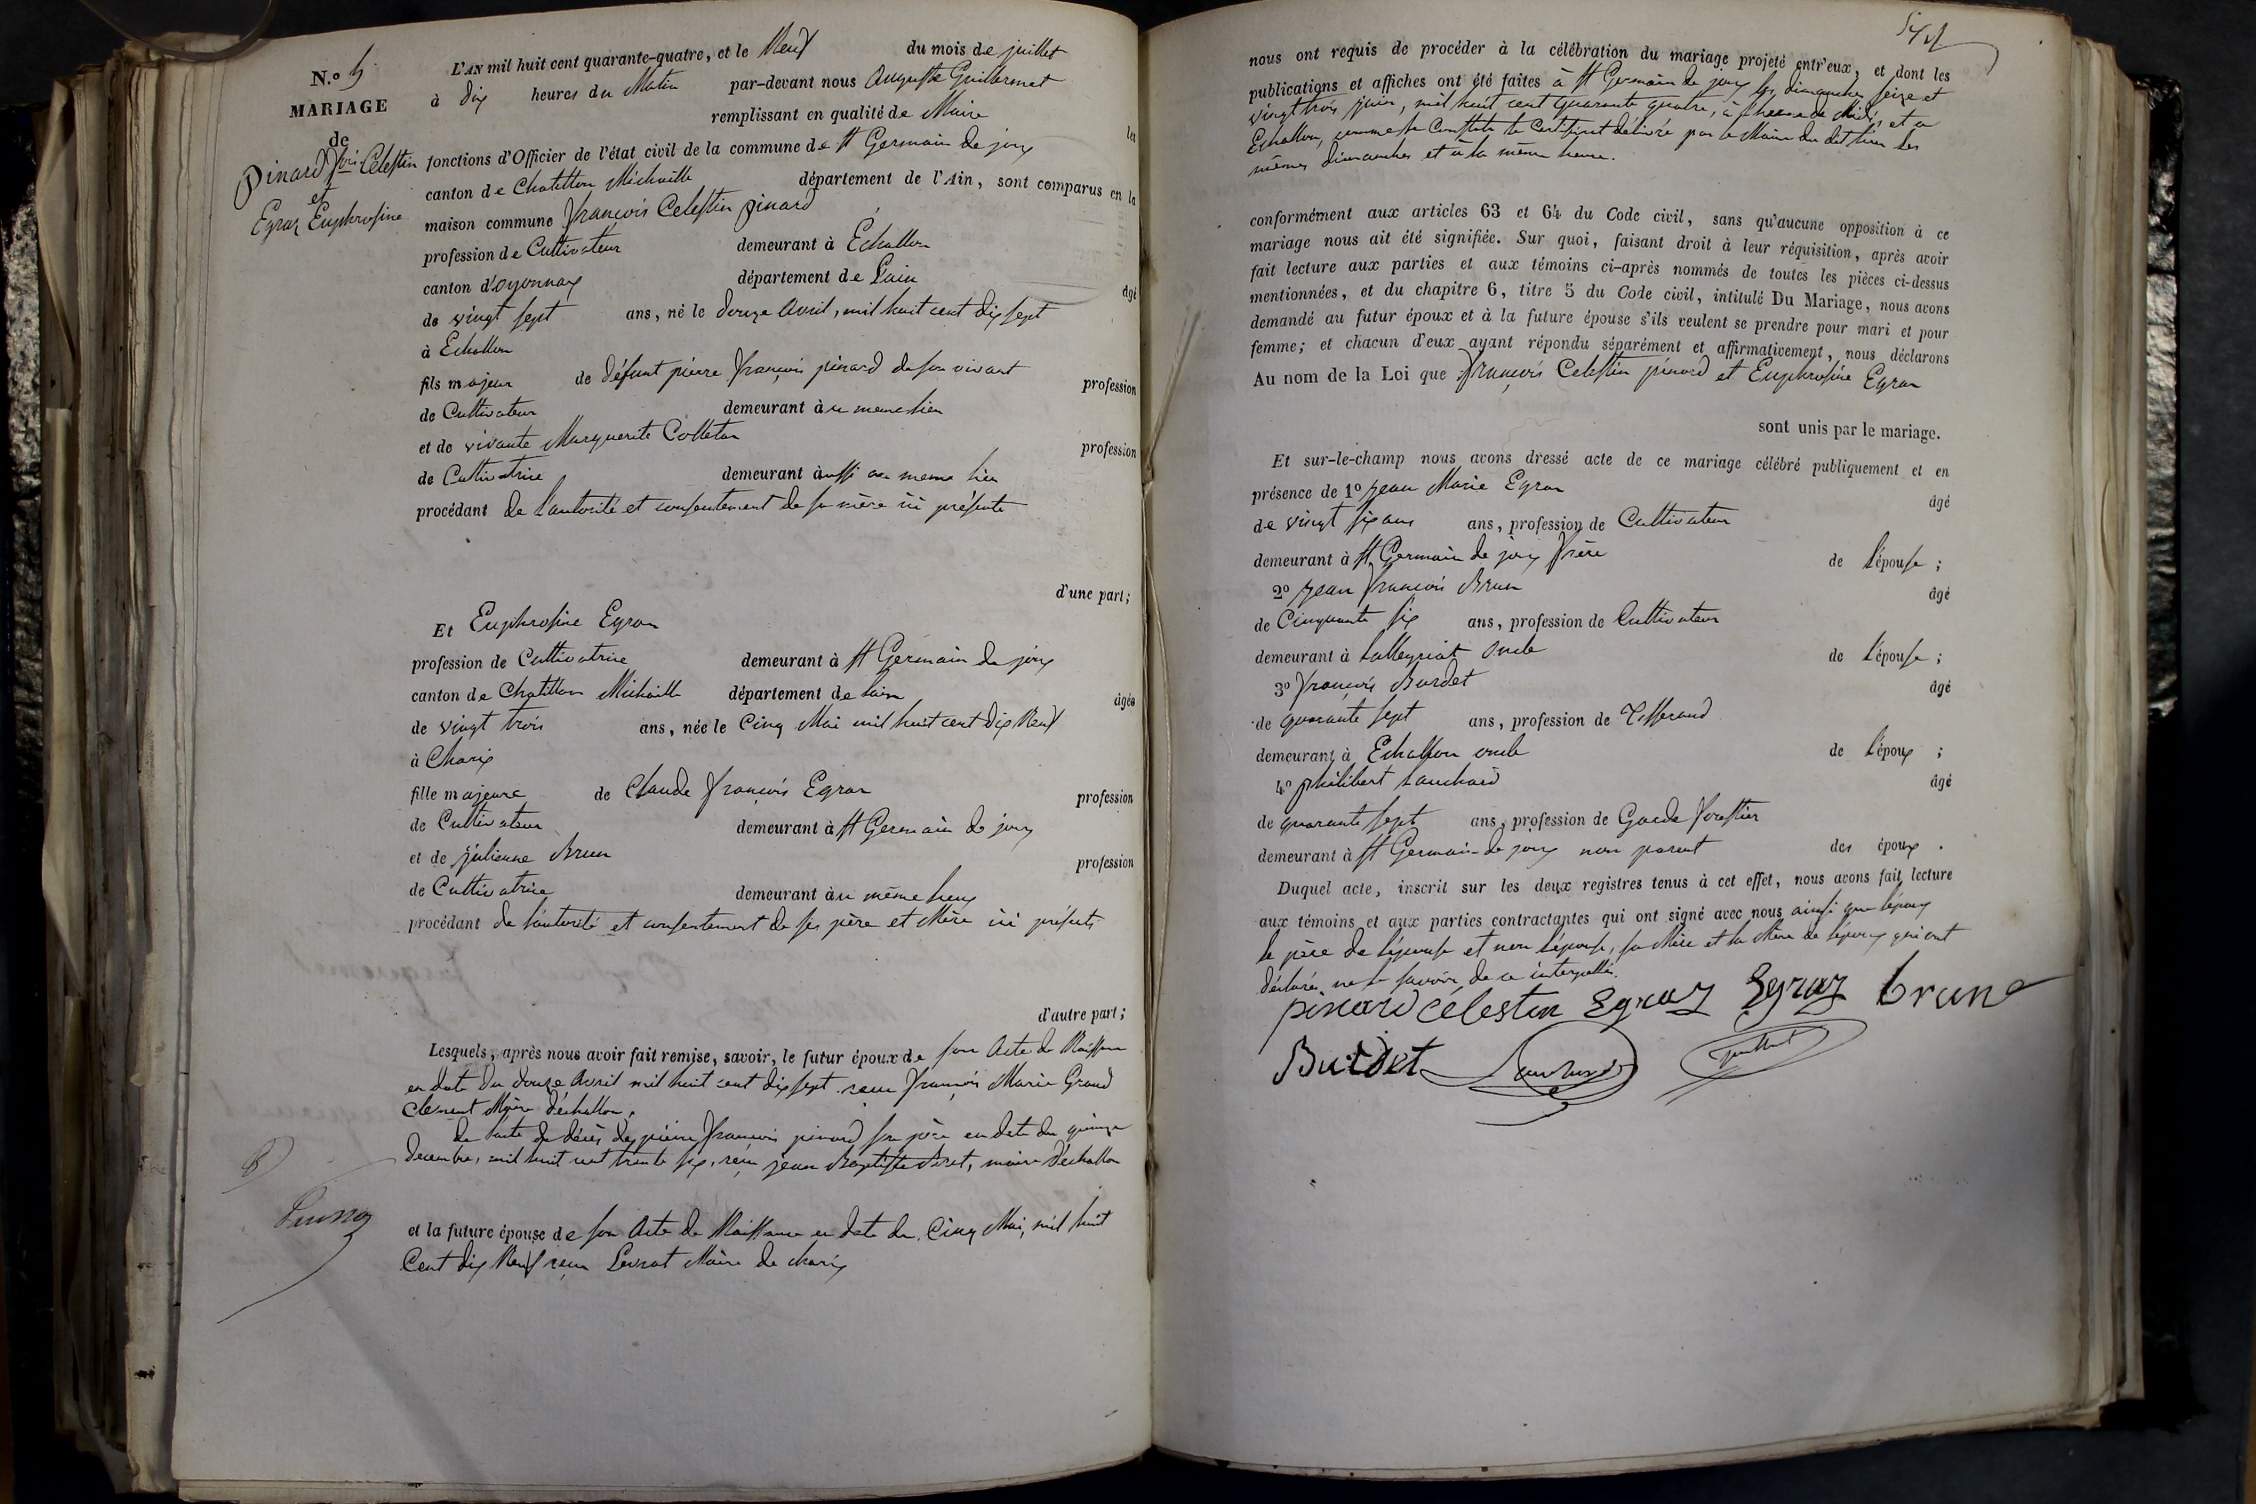 N.º 5
MARIAGE
de
Pinard fois Celestin
et
Egraz Euphrosine
L'AN mil huit cent quarante-quatre, et le Neuf du mois de juillet
à dix heures du Matin par-devant nous Auguste Guillermet
remplissant en qualité de Maire les
fonctions d'Officier de l'état civil de la commune de St Germain de joux
canton de Chatillon Michaille département de l'Ain, sont comparus en la
maison commune françois Celestin pinard
profession de Cultivateur demeurant à Echallon
canton d'oyonnax département de L'ain âgé
de vingt sept ans, né le douze Avril, mil huit cent dix sept
à Echallon
fils majeur de défunt pierre françois pinard de son vivant profession
de Cultivateur demeurant àu meme lieu
et de vivante Marguerite Colletan profession
de Cultivatrice demeurant àussi au meme lieu
procédant de l'autorité et consentement de sa mère ici présente
d'une part;
Et Euphrosine Egraz
profession de Cultivatrice demeurant à St Germain de joux
canton de Chatillon Michaille département de lain âgée
de vingt trois ans, née le Cinq Mai mil huit cent dix Neuf
à Charix
fille majeure de Claude françois Egraz profession
de Cultivateur demeurant à St Germain de joux
et de julienne Brun profession
de Cultivatrice demeurant àu même lieu
procédant de l'autorité et consentement de ses père et Mère ici présents
d'autre part;
Lesquels, après nous avoir fait remise, savoir, le futur époux de son Acte de Naissance
en date du douze Avril mil huit cent dix sept reçu françois Marie Grand
Clement Maire d'échallon,
de l'acte de décès de pierre françois pinard son père en date du quinze
Decembre, mil huit cent trente six, reçu jean Baptiste Buret, maire d'échallon
et la future épouse de son Acte de Naissance en date du Cinq Mai, mil huit
Cent dix Neuf reçu Levrat Maire de charix
nous ont requis de procéder à la célébration du mariage projeté entr'eux, et dont les
publications et affiches ont été faites à St Germain de joux les dimanches seize et
vingt trois juin, mil huit cent quarante quatre, à l'heure de Midi, et a
Echallon, comme le Constate le Certificat délivré par le Maire du dit lieu les
mêmes dimanches et à la même heure.
conformément aux articles 63 et 64 du Code civil, sans qu'aucune opposition à ce
mariage nous ait été signifiée. Sur quoi, faisant droit à leur réquisition, après avoir
fait lecture aux parties et aux témoins ci-après nommés de toutes les pièces ci-dessus
mentionnées, et du chapitre 6, titre 5 du Code civil, intitulé Du Mariage, nous avons
demandé au futur époux et à la future épouse s'ils veulent se prendre pour mari et pour
femme; et chacun d'eux ayant répondu séparément et affirmativement, nous déclarons
Au nom de la Loi que françois Celestin pinard et Euphrosine Egraz
sont unis par le mariage.
Et sur-le-champ nous avons dressé acte de ce mariage célébré publiquement et en
présence de 1º jean Marie Egraz âgé
de vingt six ans ans, profession de Cultivateur
demeurant à St Germain de joux frère de l'épouse ;
2º jean françois Brun âgé
de Cinquante six ans, profession de Cultivateur
demeurant à Lalleyriat oncle de l'épouse ;
3º françois Burdet âgé
de quarante sept ans, profession de Tisserand
demeurant à Echallon oncle de l'époux ;
4º philibert Lanchard âgé
de quarante sept ans, profession de Garde forestier
demeurant à St Germain de joux non parent des époux .
Duquel acte, inscrit sur les deux registres tenus à cet effet, nous avons fait lecture
aux témoins et aux parties contractantes qui ont signé avec nous ainsi que l'époux
le père de l'épouse et non l'épouse, sa Mère et la Mère de l'époux qui ont
déclarés ne le savoir de ce interpellés.
pinard célestin Egraz Egraz brun
Burdet